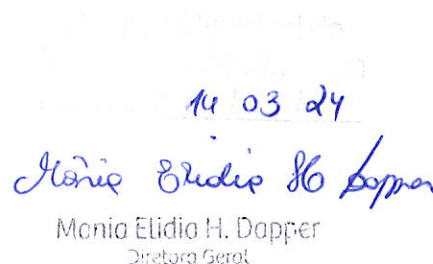 14 03 24
Mônia Elidia H. Dapper
Mania Elidia H. Dapper
Diretora Geral